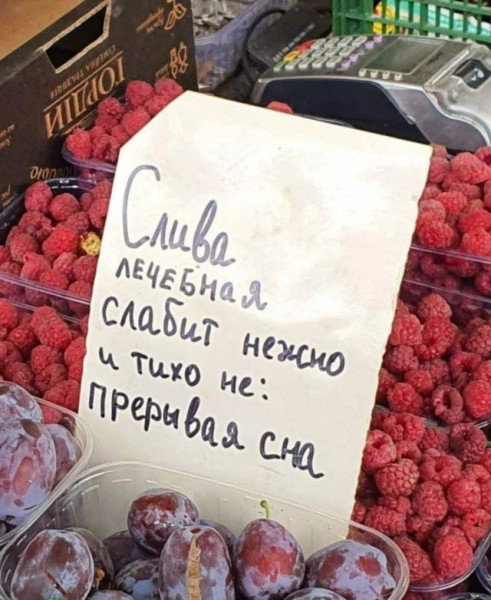 ГОРДІЙ
СІМЕЙНА ТРАДИЦІЯ
Слива
ЛЕЧЕБНАЯ
слабит нежно
и тихо не:
прерывая сна